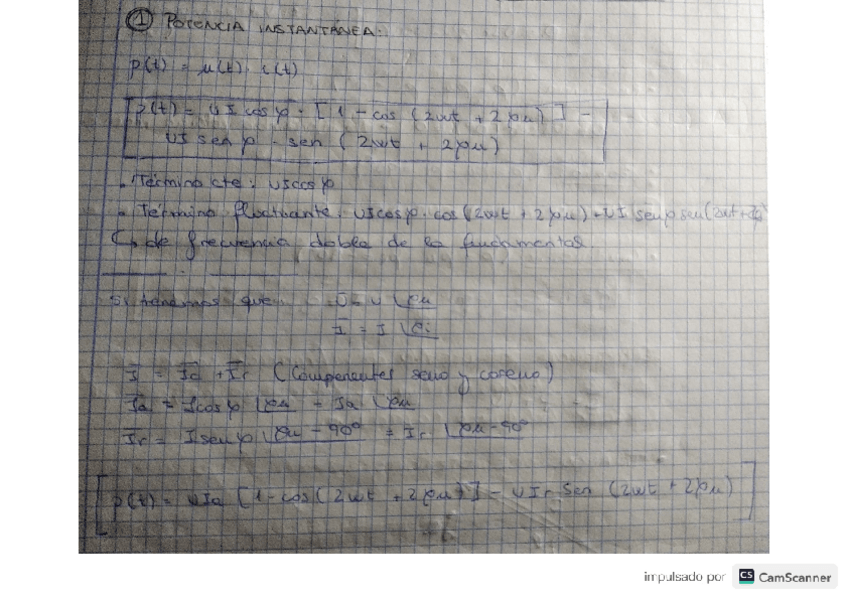 ① POTENCIA INSTANTÁNEA:
p(t) = u(t) · i(t)
p(t) = UI cos φ · [1 - cos (2wt + 2φu)] -
UI sen φ · sen (2wt + 2φu)
• Término cte: UI cos φ
• Término fluctuante: UI cos φ · cos (2wt + 2φu) - UI sen φ sen (2wt + 2φu)
↳ de frecuencia doble de la fundamental.
Si tenemos que: Ū = U ∠φu
Ī = I ∠φi
Ī = Īa + Īr (Componentes seno y coseno)
Īa = I cos φ ∠φu = Ia ∠φu
Īr = I sen φ ∠φu - 90º = Ir ∠φu - 90º
p(t) = UIa [1 - cos (2wt + 2φu)] - UIr sen (2wt + 2φu)
impulsado por CS CamScanner